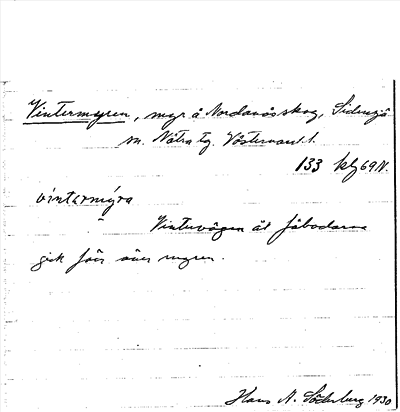 Vintermyren, myr å Nordanåsskog, Sidensjö
sn. Nätra tg. Västernorrl. l.
133 kbg 69 N.
vìntermýra
Vintervägen åt fäbodarna
gick förr över myren.
Hans N. Söderberg 1930